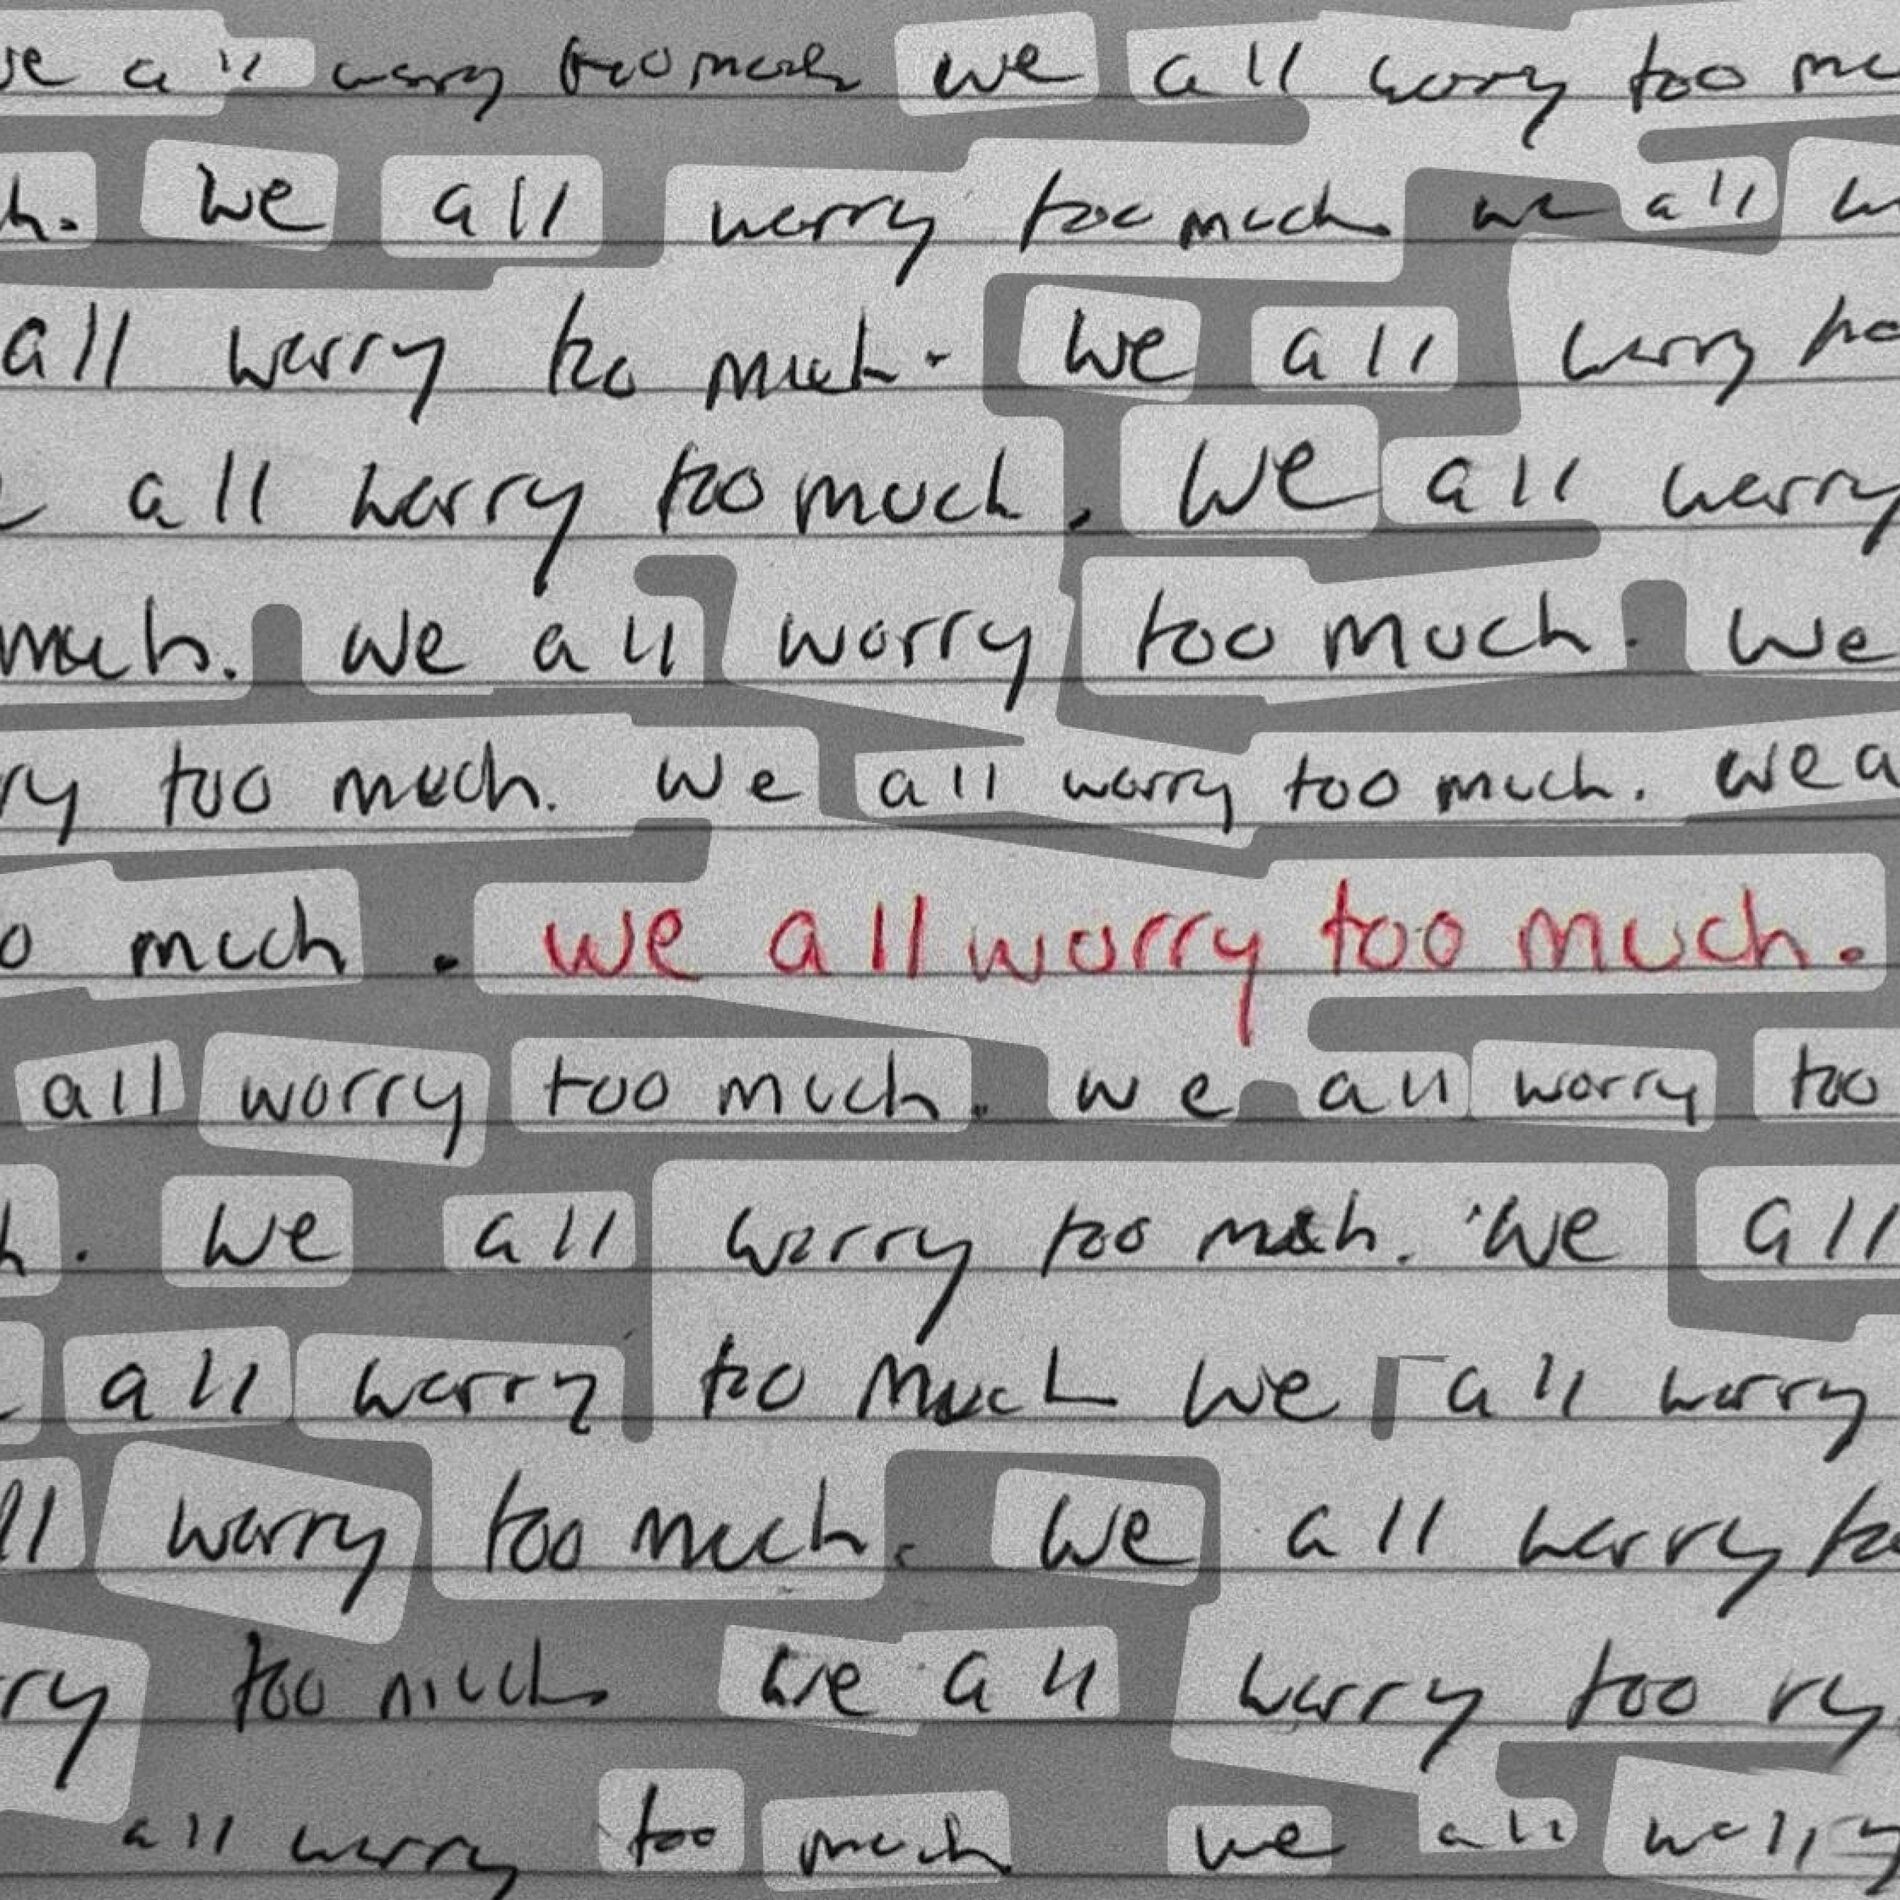 we all worry too much we all worry too mu
h. We all worry too much. we all w
all worry too much. We all worry to
e all worry too much. We all worry
much. We all worry too much. We
ry too much. We all worry too much. we a
o much. we all worry too much.
all worry too much. we all worry too
h. We all worry too much. We all
all worry too much we all worry
ll worry too much. We all worry to
ry too much. we all worry too ry
all worry too much we all worry